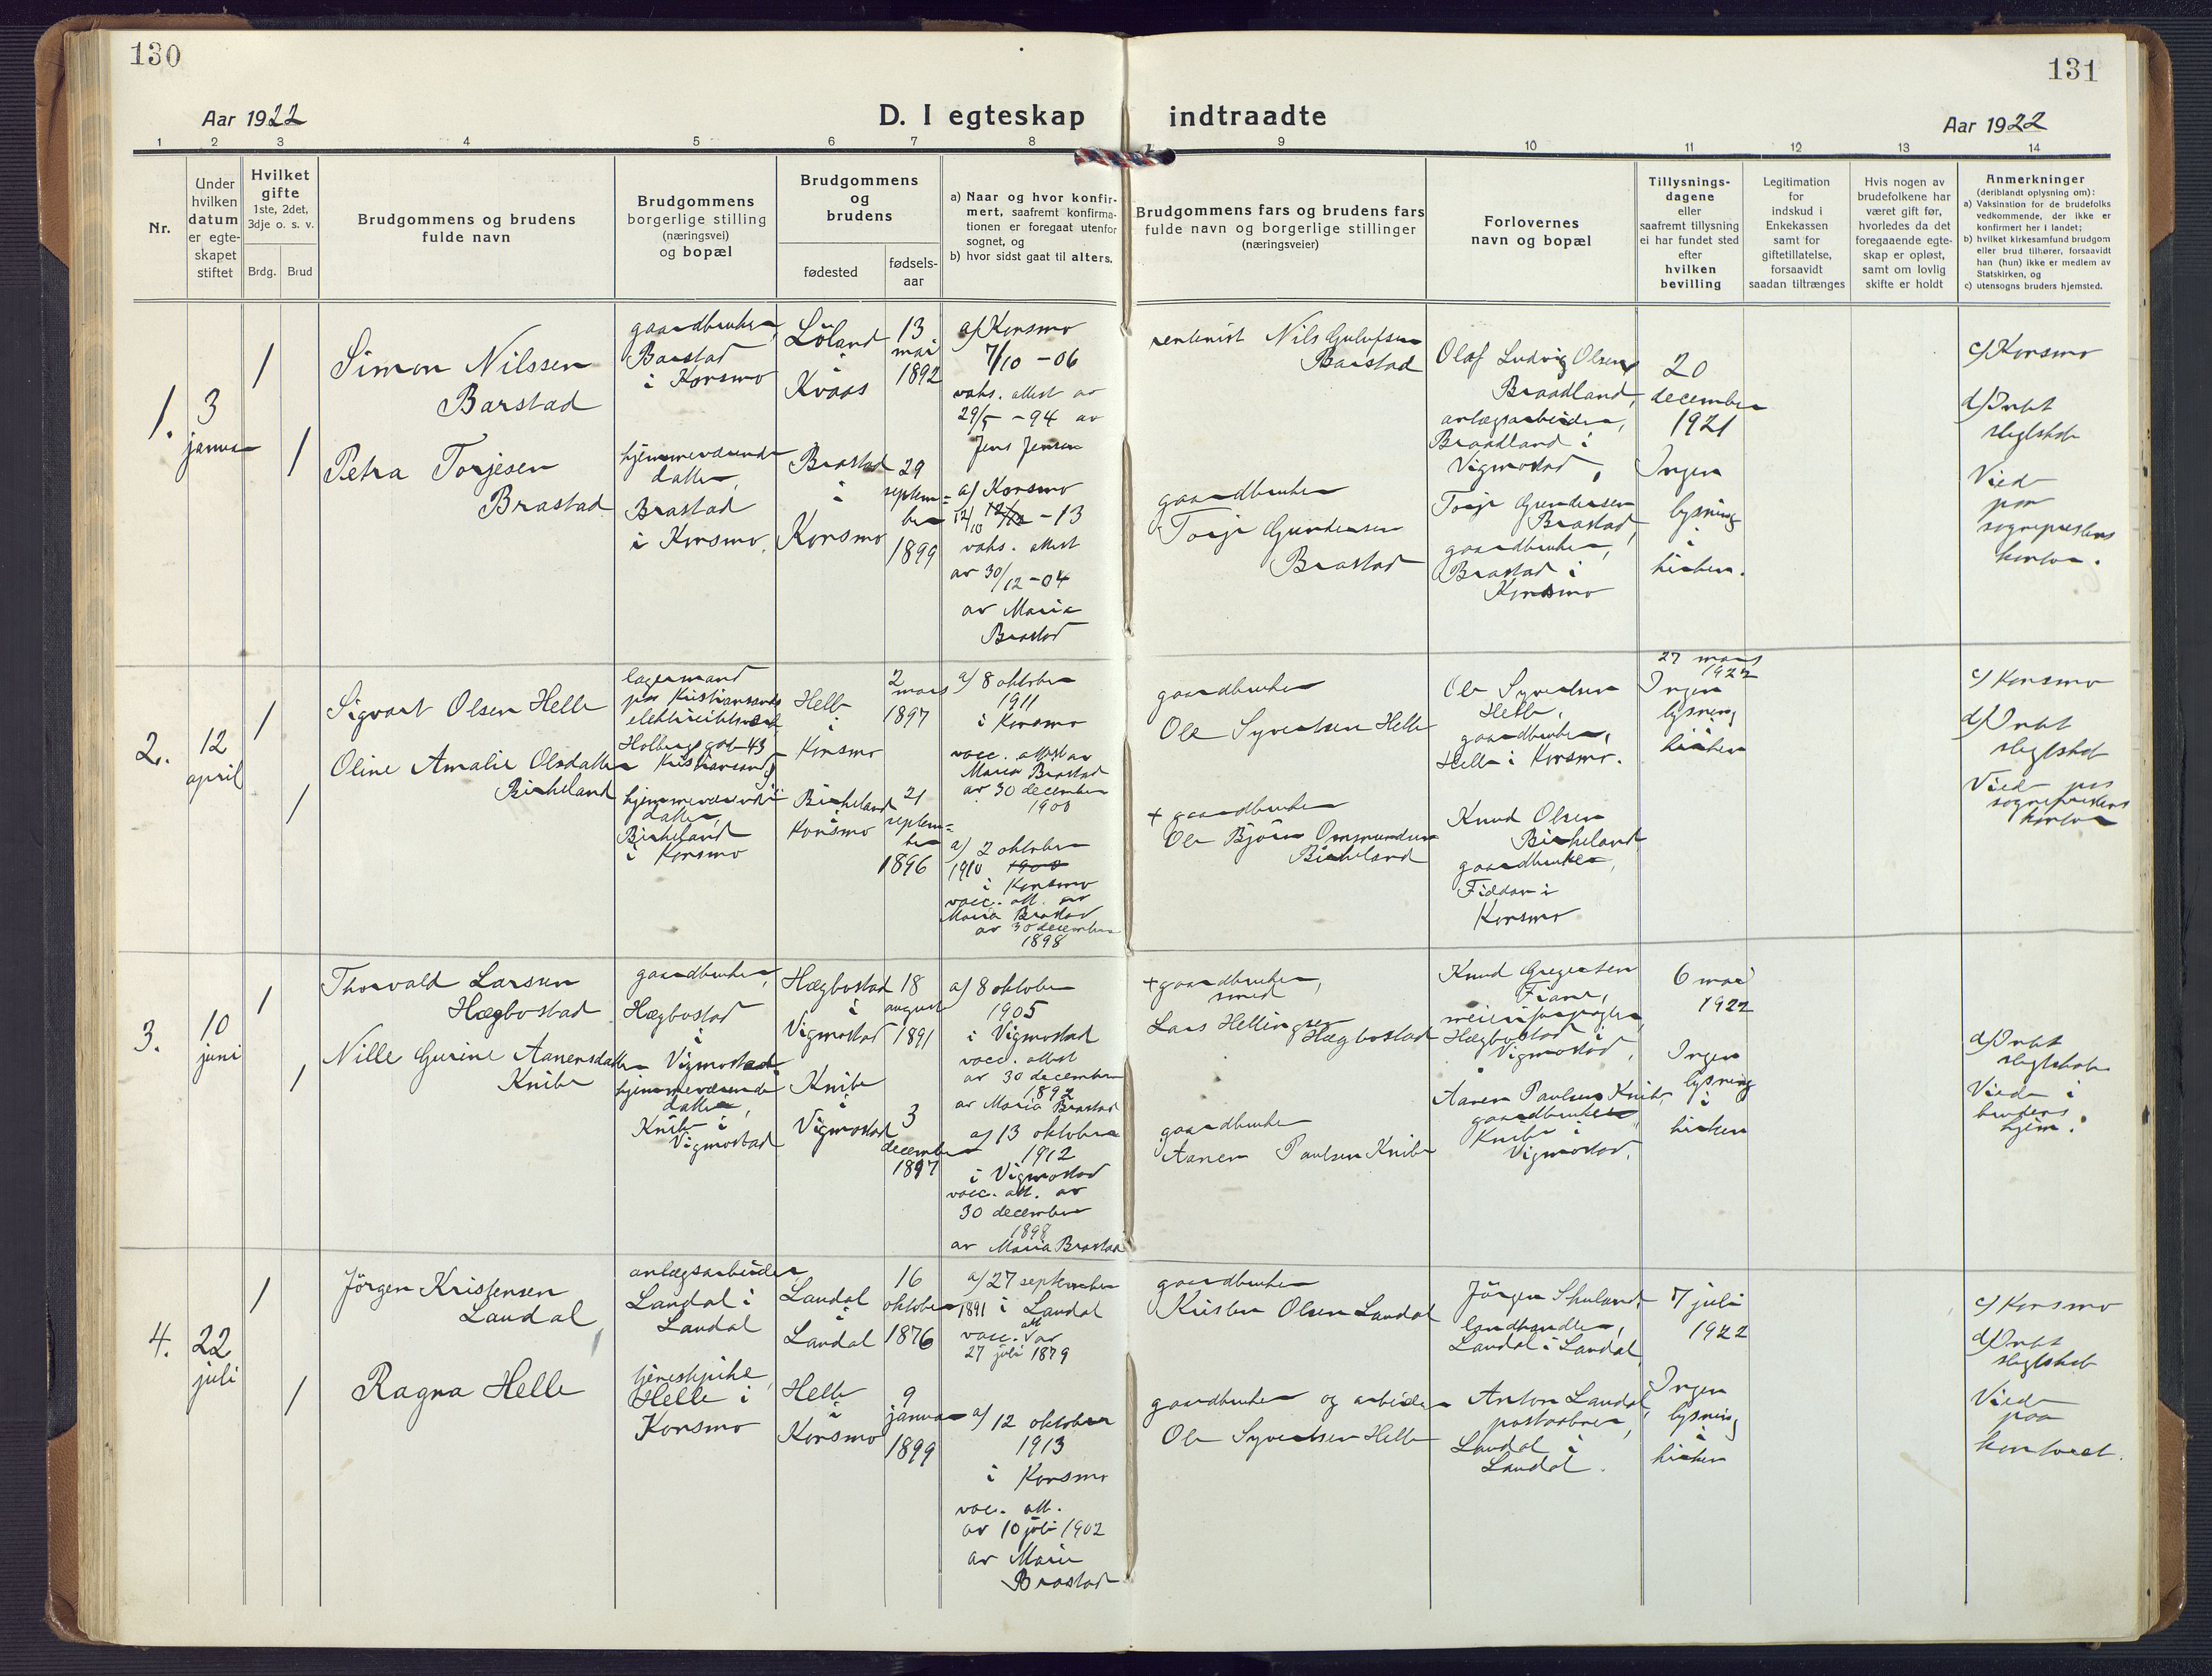 130
131
Aar 1922
D. I egteskap indtraadte
Aar 1922
1 2 3 4 5 6 7 8 9 10 11 12 13 14
Nr.
Under
hvilken
datum
er egte-
skapet
stiftet
Hvilket
gifte
1ste, 2det,
3dje o. s. v.
Brdg. Brud
Brudgommens og brudens
fulde navn
Brudgommens
borgerlige stilling
(næringsvei)
og bopæl
Brudgommens
og
brudens
fødested
fødsels-
aar
a) Naar og hvor konfir-
mert, saafremt konfirma-
tionen er foregaat utenfor
sognet, og
b) hvor sidst gaat til alters.
Brudgommens fars og brudens fars
fulde navn og borgerlige stillinger
(næringsveier)
Forlovernes
navn og bopæl
Tillysnings-
dagene
eller
saafremt tillysning
ei har fundet sted
efter
hvilken
bevilling
Legitimation
for
indskud i
Enkekassen
samt for
giftetillatelse,
forsaavidt
saadan tiltrænges
Hvis nogen av
brudefolkene har
været gift før,
hvorledes da det
foregaaende egte-
skap er opløst,
samt om lovlig
skifte er holdt
Anmerkninger
(deriblandt oplysning om):
a) Vaksination for de brudefolks
vedkommende, der ikke er
konfirmert her i landet;
b) hvilket kirkesamfund brudgom
eller brud tilhører, forsaavidt
han (hun) ikke er medlem av
Statskirken, og
c) utensogns bruders hjemsted.
1.
3
januar
1
Simon Nilssen
Barstad
gaardbruker,
Barstad
i Konsmo
Löland
i
Kvaas
13
mai
1892
a) Konsmo
7/10 - 06
vaks. attest av
29/5 - 94 av
Jens Jensen
rentenist Nils Gulufsen
Barstad
Olaf Ludvig Olsen
Braadland,
anlægsarbeider,
Braadland i
Vigmostad,
20
december
1921
Ingen
lysning
i
kirken.
c) Konsmo
d) Intet
slegtskab
Viede
paa
sogneprestens
kontor.
1
Petra Torjesen
Brastad
hjemmeværende
datter,
Brastad
i Konsmo.
Brastad
i
Konsmo
29
septem=
ber
1899
a) Konsmo
12/10 12/12 - 13
vaks. attest
av 30/12 - 04
av Maria
Brastad
gaardbruker
Torje Gundersen
Brastad
Torje Gundersen
Brastad,
gaardbruker,
Brastad i
Konsmo
2.
12
april
1
Sigvart Olsen Helle
lagermand
paa Kristianssands
elektricitetsverk
Holbergs gat-43
Kristianssand
Helle
i
Konsmo
2
mars
1897
a) 8 oktober
1911
i Konsmo
vacc. attest av
Maria Brastad
av 30 december
1900
gaardbruker
Ole Syvertsen Helle
Ole Syvertsen
Helle,
gaardbruker,
Helle i Konsmo.
27 mars
1922
Ingen
lysning
i
kirken
c) Konsmo
d) Intet
slegtskab
Viede paa
sogneprestens
kontor
1
Oline Amalie Olsdatter
Birkeland
hjemmeværende
datter,
Birkeland
i Konsmo
Birkeland
i
Konsmo
21
septem=
ber
1896
a) 2 oktober
1910 1900
i Konsmo
vacc. att. av
Maria Brastad
av 30 december
1898
+ gaardbruker
Ole Bjørn Ommundsen
Birkeland
Knud Olsen
Birkeland
gaardbruker,
Fiddan i
Konsmo
3.
10
juni
1
Thorvald Larsen
Hægbostad
gaardbruker,
Hægbostad
i
Vigmostad
Hægbostad
i
Vigmostad
18
august
1891
a) 8 oktober
1905
i Vigmostad
vacc. attest
av 30 december
1892
av Maria Brastad
+ gaardbruker,
smed
Lars Hellingsen
Hægbostad
Knud Gregersen
Fiane,
meieriforpagter,
Hægbostad i
Vigmostad,
6 mai
1922
Ingen
lysning
i
kirken
d) Intet
slegtskab
Viede i
brudens
hjem.
1
Nille Gurine Aanensdatter
Knibe
hjemmeværende
datter,
Knibe i
Vigmostad
Knibe
i
Vigmostad
3
december
1897
a) 13 oktober
1912
i Vigmostad
vacc. att. av
30 december
1898
av Maria Brastad
gaardbruker
Aanen Paulsen Knibe
Aanen Paulsen Knibe,
gaardbruker
Knibe i
Vigmostad.
4.
22
juli
1
Jörgen Kristensen
Laudal
anlægsarbeider,
Laudal i
Laudal
Laudal
i
Laudal
16
oktober
1876
a) 27 september
1891 i Laudal
vacc. att av
27 juli 1879
gaardbruker
Kristen Olsen Laudal
Jörgen Skuland,
landhandler,
Laudal i Laudal
7 juli
1922
Ingen
lysning
i
kirken
c) Konsmo
d) Intet
slegtskab
Viede
paa
kontoret.
1
Ragna Helle
tjenestepike,
Helle i
Konsmo
Helle
i
Konsmo
9
januar
1899
a) 12 oktober
1913
i Konsmo
vac. att.
av 10 juli 1902
av Marie
Brastad
gaardbruker og arbeider
Ole Syvertsen Helle
Anton Laudal,
postaabner,
Laudal i
Laudal.